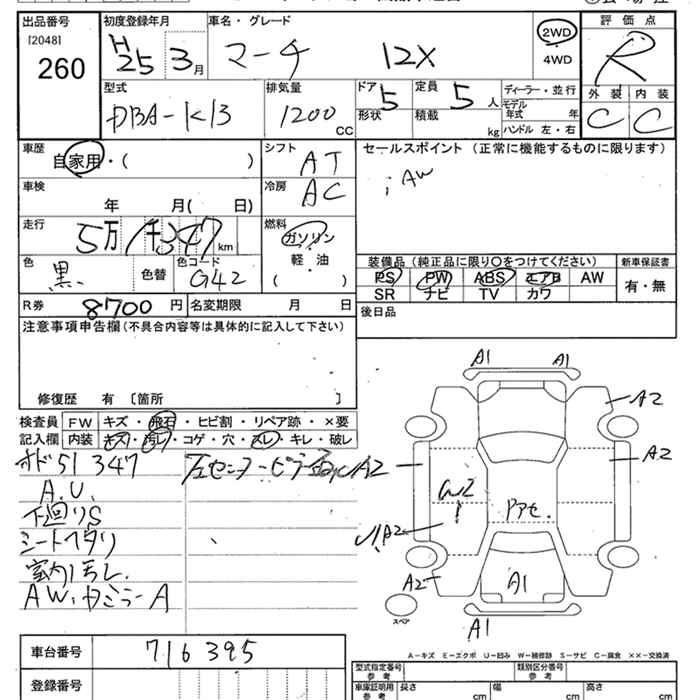 出品番号 初度登録年月 車名・グレード 評価点
[2048] 260 H25 3月 マーチ 12X 2WD R
4WD
外装 内装
C C
型式 DBA-K13 排気量 1200 CC
ドア 5 定員 5 人 ディーラー・並行
形状 積載 kg モデル年式 年
ハンドル 左・右
車歴 自家用・( ) シフト AT セールスポイント (正常に機能するものに限ります)
車検 年 月( 日) 冷房 AC ; AW
走行 5万1千347km 燃料 ガソリン
軽・油
( )
色 黒 色替 色コード G42
装備品 (純正品に限り○をつけてください) 新車保証書
PS PW ABS エアB AW 有・無
SR ナビ TV カワ
R券 8700円 名変期限 月 日 後日品
注意事項申告欄(不具合内容等は具体的に記入して下さい)
修復歴 有 〔箇所 〕
検査員 FW キズ・飛石・ヒビ割・リペア跡・×要
記入欄 内装 キズ・汚レ・コゲ・穴・スレ・キレ・破レ
オド51347
A.U.
下廻りS
シートヘタリ
室内汚レ.
AW.ドミラーA
左センターピラー
A1 A1
A2
A2 A2
W2
アセ.
A2
A2 A1
スペア
A1
A-キズ E-エクボ U-凹み W-補修跡 S-サビ C-腐食 ××-交換済
車台番号 716395
登録番号
型式指定番号 参考 類別区分番号 参考
車庫証明用 参考 長さ cm 幅 cm 高さ cm